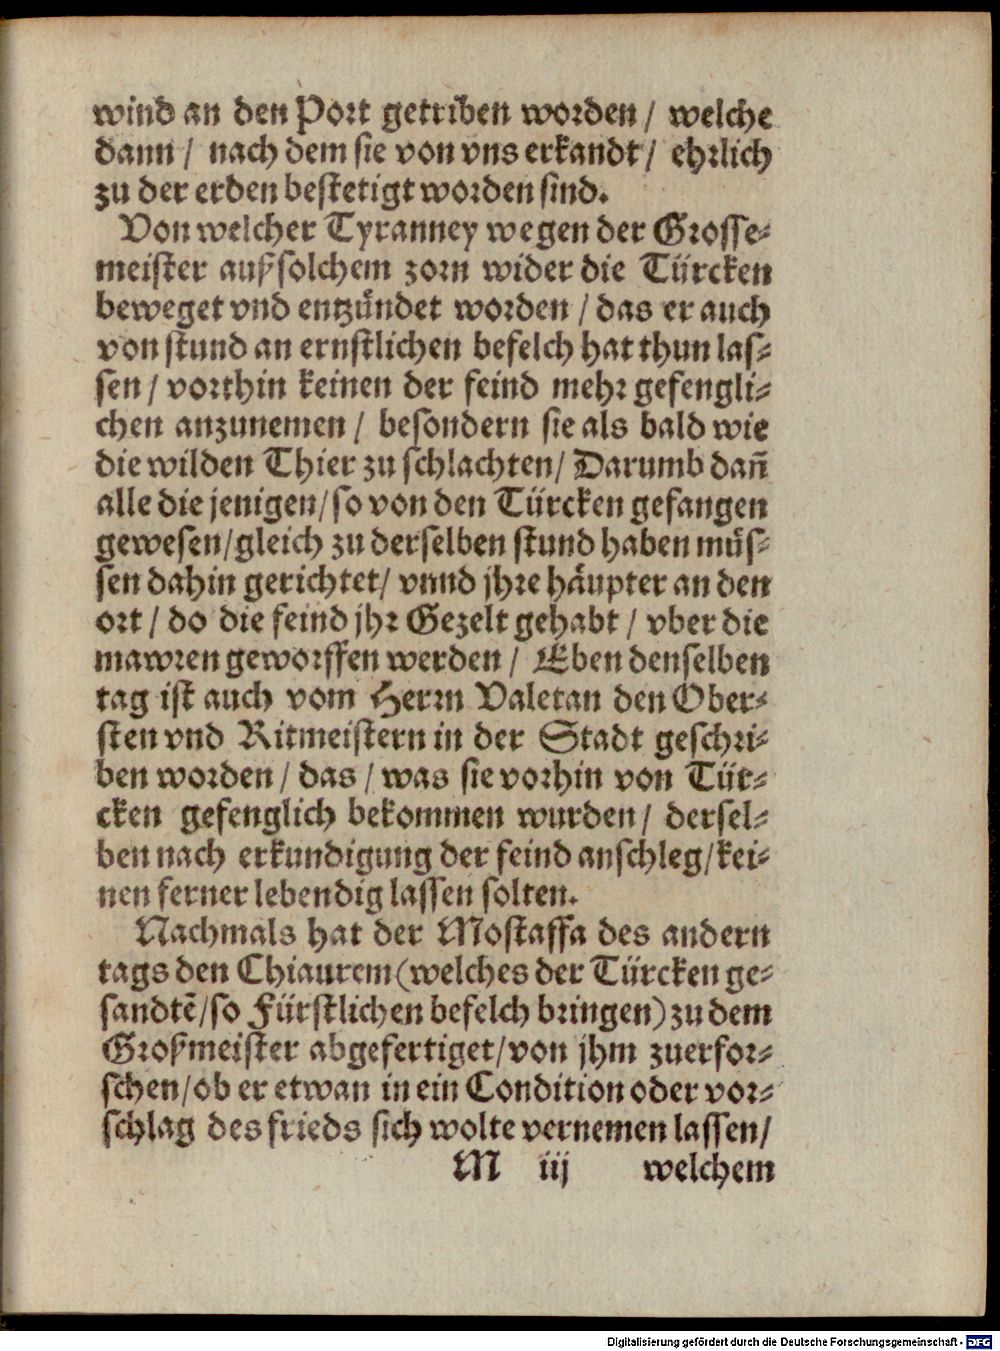 wind an den Port getriben worden / welche
dann / nach dem sie von vns erkandt / ehrlich
zu der erden bestetigt worden sind.
Von welcher Tyranney wegen der Grosse-
meister auß solchem zorn wider die Türcken
beweget vnd entzündet worden / das er auch
von stund an ernstlichen befelch hat thun las-
sen / vorthin keinen der feind mehr gefengli-
chen anzunemen / besondern sie als bald wie
die wilden Thier zu schlachten / Darumb dañ
alle die jenigen / so von den Türcken gefangen
gewesen / gleich zu derselben stund haben müs-
sen dahin gerichtet / vnnd jhre häupter an den
ort / do die feind jhr Gezelt gehabt / vber die
mawren geworffen werden / Eben denselben
tag ist auch vom Herrn Valetan den Ober-
sten vnd Ritmeistern in der Stadt geschri-
ben worden / das / was sie vorhin von Tür-
cken gefenglich bekommen wurden / dersel-
ben nach erkundigung der feind anschleg / kei-
nen ferner lebendig lassen solten.
Nachmals hat der Mostaffa des andern
tags den Chiaurem (welches der Türcken ge-
sandtē / so Fürstlichen befelch bringen) zu dem
Großmeister abgefertiget / von jhm zuerfor-
schen / ob er etwan in ein Condition oder vor-
schlag des frieds sich wolte vernemen lassen /
M iij welchem
Digitalisierung gefördert durch die Deutsche Forschungsgemeinschaft - DFG